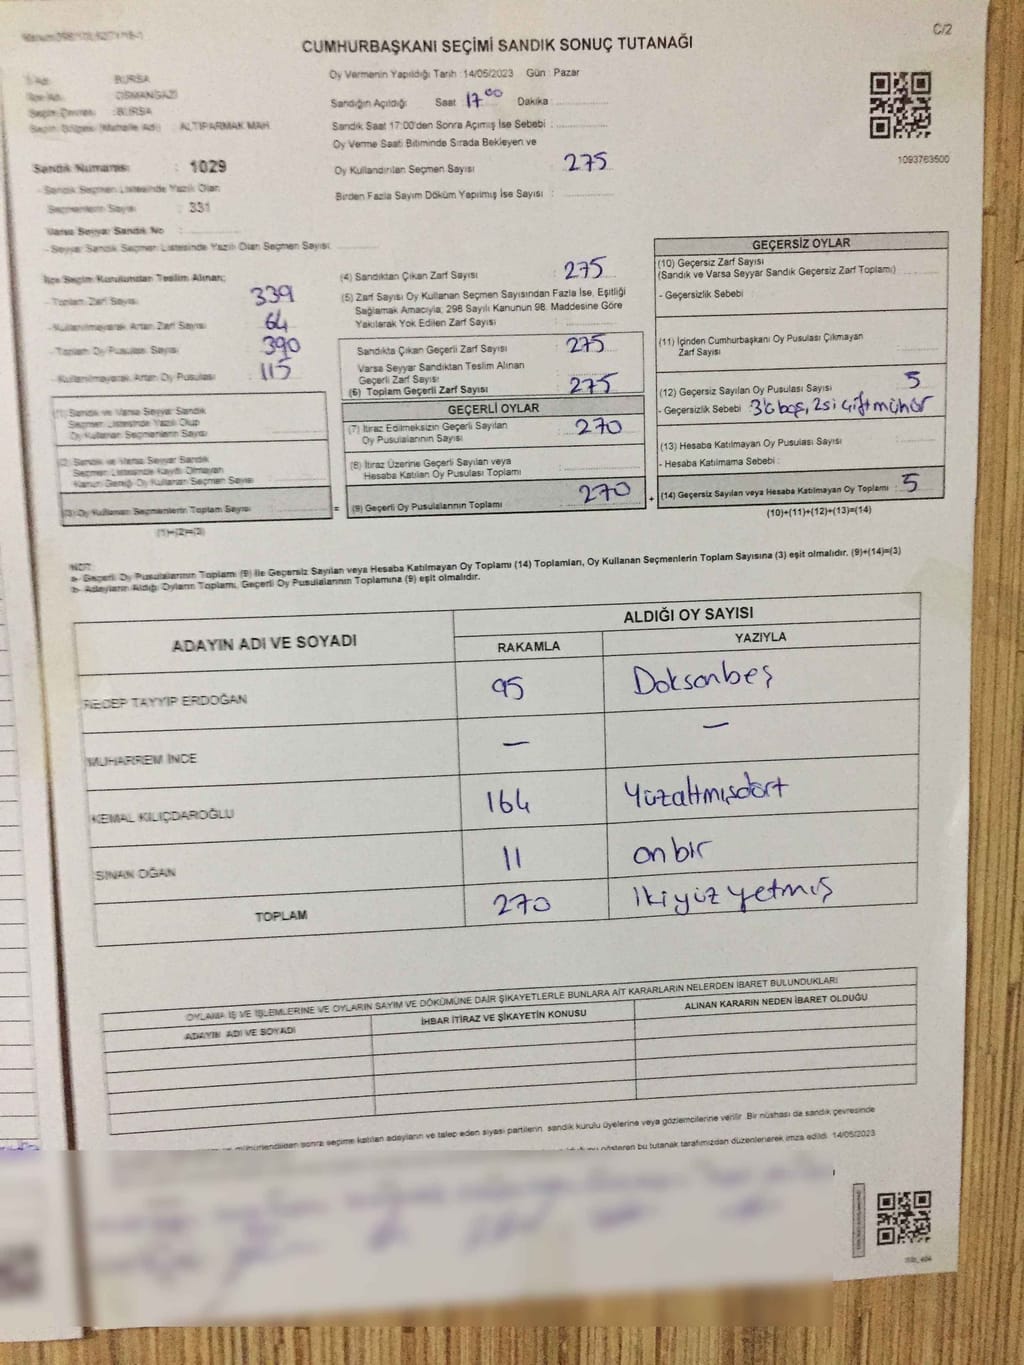 C/2
CUMHURBAŞKANI SEÇİMİ SANDIK SONUÇ TUTANAĞI
İl Adı : BURSA
İlçe Adı : OSMANGAZİ
Seçim Çevresi : BURSA
Seçim Bölgesi (Mahalle Adı) : ALTIPARMAK MAH.
Sandık Numarası : 1029
- Sandık Seçmen Listesinde Yazılı Olan
Seçmenlerin Sayısı : 331
Varsa Seyyar Sandık No :
- Seyyar Sandık Seçmen Listesinde Yazılı Olan Seçmen Sayısı :
Oy Vermenin Yapıldığı Tarih : 14/05/2023 Gün : Pazar
Sandığın Açıldığı Saat 17 00 Dakika :
Sandık Saat 17:00'den Sonra Açımış İse Sebebi :
Oy Verme Saati Bitiminde Sırada Bekleyen ve
Oy Kullandırılan Seçmen Sayısı : 275
Birden Fazla Sayım Döküm Yapılmış İse Sayısı :
1093763500
İlçe Seçim Kurulundan Teslim Alınan;
- Toplam Zarf Sayısı : 339
- Kullanılmayarak Artan Zarf Sayısı : 64
- Toplam Oy Pusulası Sayısı : 390
- Kullanılmayarak Artan Oy Pusulası : 115
(1) Sandık ve Varsa Seyyar Sandık
Seçmen Listesinde Yazılı Olup
Oy Kullanan Seçmenlerin Sayısı :
(2) Sandık ve Varsa Seyyar Sandık
Seçmen Listesinde Kayıtlı Olmayan
Kanun Gereği Oy Kullanan Seçmen Sayısı :
(3) Oy Kullanan Seçmenlerin Toplam Sayısı :
(1)+(2)=(3)
=
(4) Sandıktan Çıkan Zarf Sayısı : 275
(5) Zarf Sayısı Oy Kullanan Seçmen Sayısından Fazla İse, Eşitliği
Sağlamak Amacıyla, 298 Sayılı Kanunun 98. Maddesine Göre
Yakılarak Yok Edilen Zarf Sayısı :
Sandıkta Çıkan Geçerli Zarf Sayısı : 275
Varsa Seyyar Sandıktan Teslim Alınan
Geçerli Zarf Sayısı :
(6) Toplam Geçerli Zarf Sayısı : 275
GEÇERLİ OYLAR
(7) İtiraz Edilmeksizin Geçerli Sayılan
Oy Pusulalarının Sayısı : 270
(8) İtiraz Üzerine Geçerli Sayılan veya
Hesaba Katılan Oy Pusulası Toplamı :
(9) Geçerli Oy Pusulalarının Toplamı : 270
+
GEÇERSİZ OYLAR
(10) Geçersiz Zarf Sayısı
(Sandık ve Varsa Seyyar Sandık Geçersiz Zarf Toplamı) :
- Geçersizlik Sebebi :
(11) İçinden Cumhurbaşkanı Oy Pusulası Çıkmayan
Zarf Sayısı :
(12) Geçersiz Sayılan Oy Pusulası Sayısı : 5
- Geçersizlik Sebebi : 3'ü boş, 2si çift mühür
(13) Hesaba Katılmayan Oy Pusulası Sayısı :
- Hesaba Katılmama Sebebi :
(14) Geçersiz Sayılan veya Hesaba Katılmayan Oy Toplamı : 5
(10)+(11)+(12)+(13)=(14)
NOT:
a- Geçerli Oy Pusulalarının Toplamı (9) ile Geçersiz Sayılan veya Hesaba Katılmayan Oy Toplamı (14) Toplamları, Oy Kullanan Seçmenlerin Toplam Sayısına (3) eşit olmalıdır. (9)+(14)=(3)
b- Adayların Aldığı Oyların Toplamı, Geçerli Oy Pusulalarının Toplamına (9) eşit olmalıdır.
ADAYIN ADI VE SOYADI
ALDIĞI OY SAYISI
RAKAMLA YAZIYLA
RECEP TAYYİP ERDOĞAN 95 Doksanbeş
MUHARREM İNCE — —
KEMAL KILIÇDAROĞLU 164 Yüzaltmışdört
SİNAN OĞAN 11 onbir
TOPLAM 270 İkiyüz yetmiş
OYLAMA İŞ VE İŞLEMLERİNE VE OYLARIN SAYIM VE DÖKÜMÜNE DAİR ŞİKAYETLERLE BUNLARA AİT KARARLARIN NELERDEN İBARET BULUNDUKLARI
ADAYIN ADI VE SOYADI İHBAR İTİRAZ VE ŞİKAYETİN KONUSU ALINAN KARARIN NEDEN İBARET OLDUĞU
mühürlendikten sonra seçime katılan adayların ve talep eden siyasi partilerin sandık kurulu üyelerine veya gözlemcilerine verilir. Bir nüshası da sandık çevresinde
gösteren bu tutanak tarafımızdan düzenlenerek imza edildi. 14/05/2023